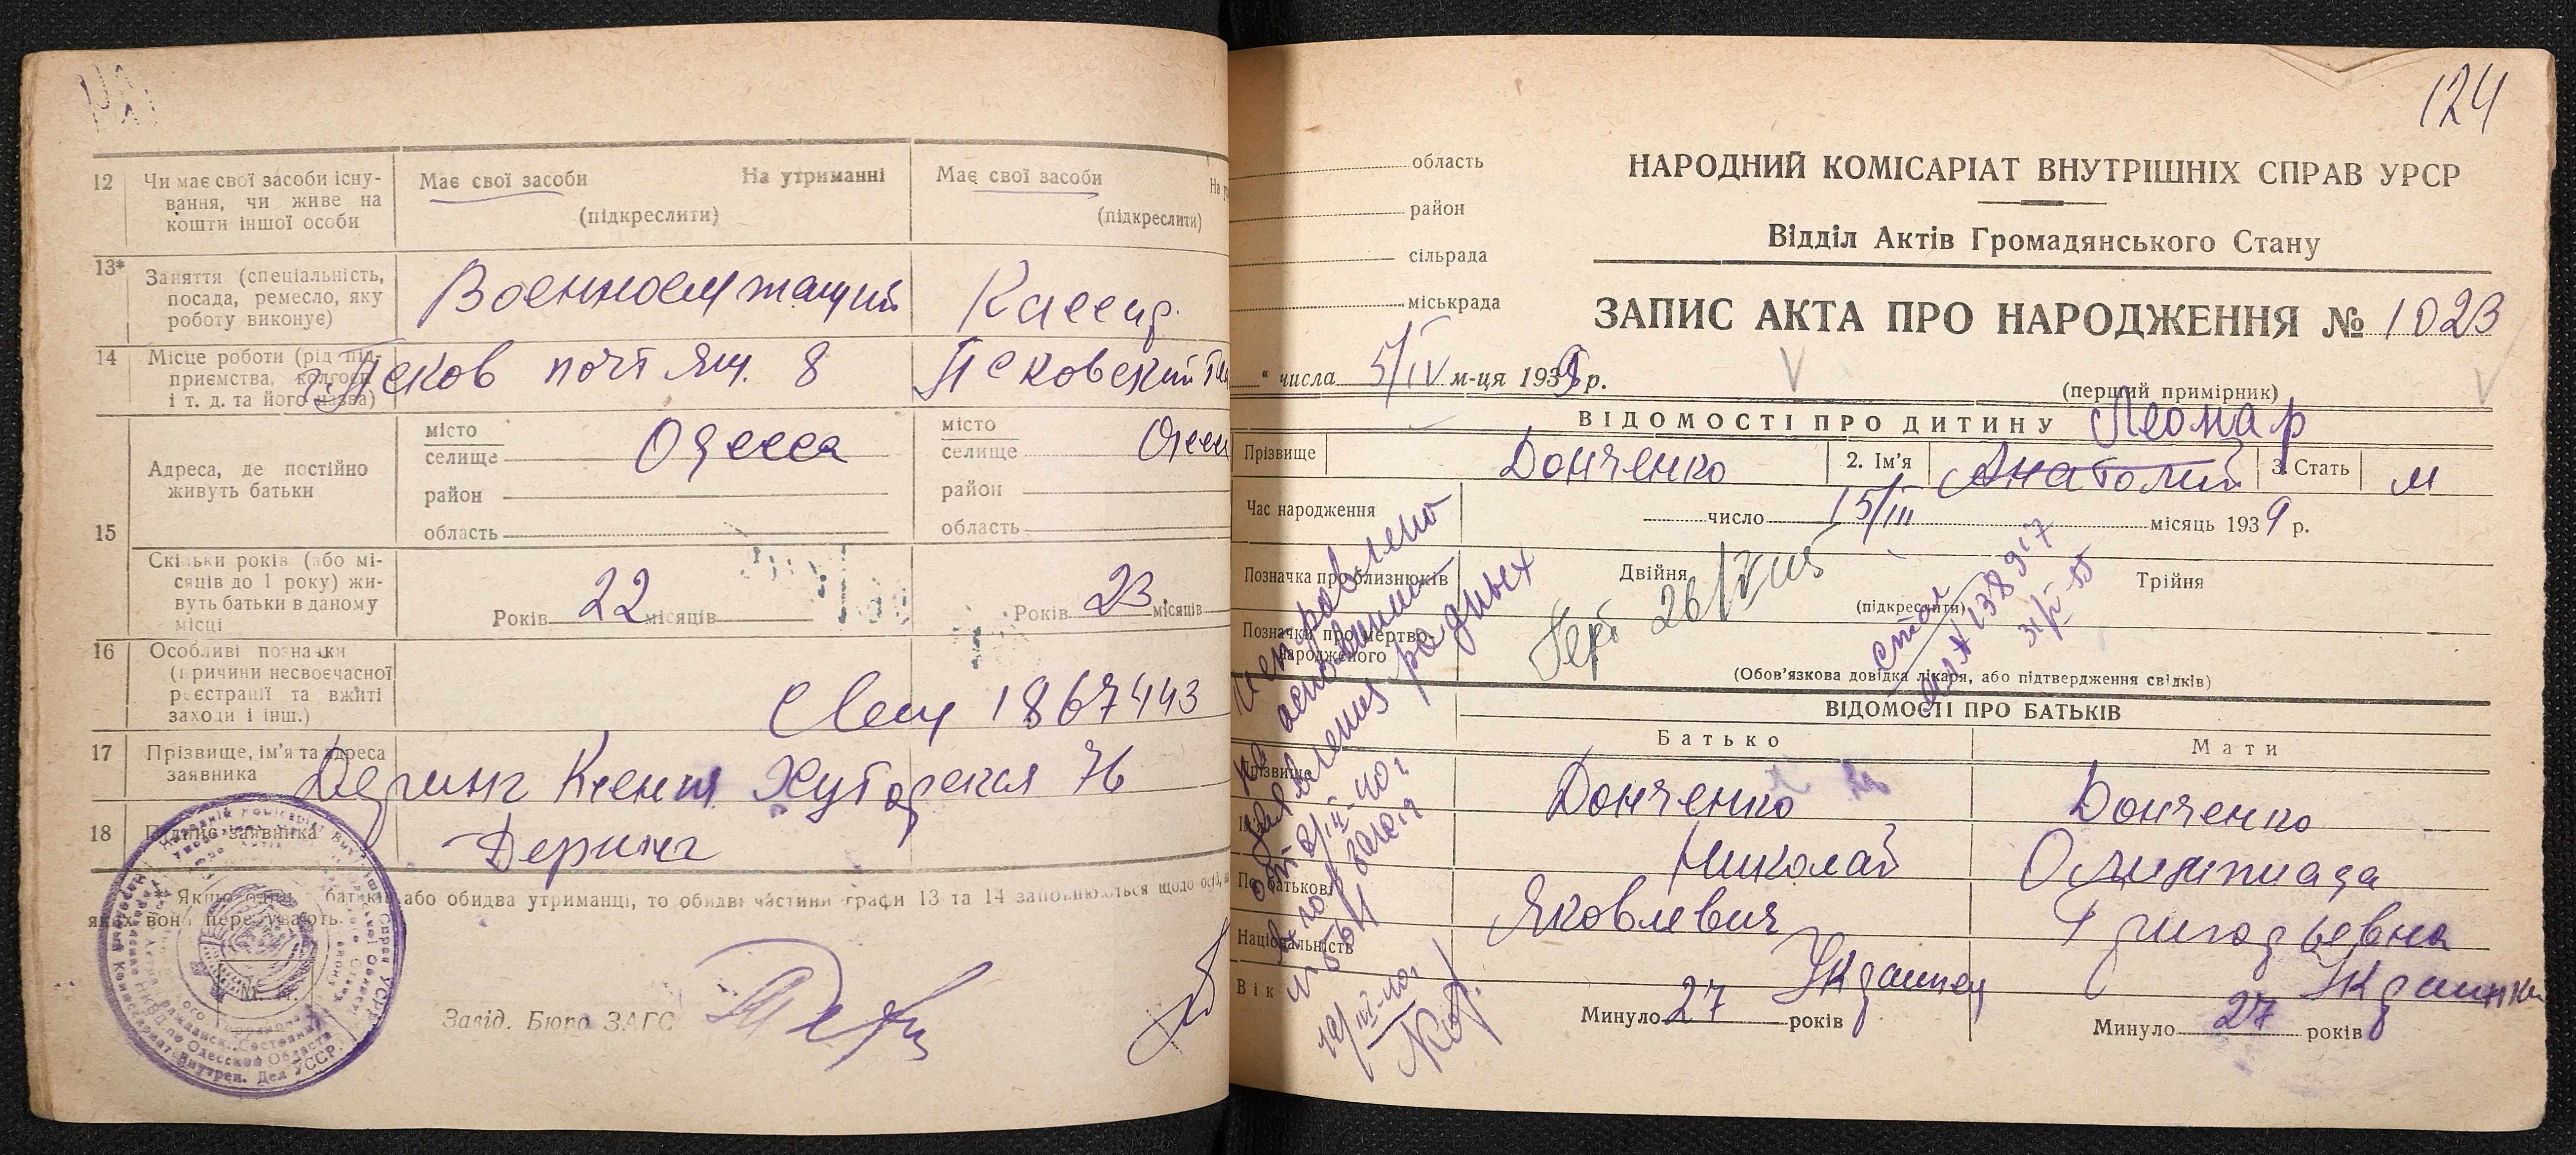 12 Чи має свої засоби існу-
вання, чи живе на
кошти іншої особи
Має свої засоби На утриманні
(підкреслити)
Має свої засоби
(підкреслити)
13* Заняття (спеціальність,
посада, ремесло, яку
роботу виконує)
Военнослужащий
Кассир
14 Місце роботи (рід під-
приємства, колгосп
і т. д. та його назва)
г. Псков почт ящ. 8
Псковский
15 Адреса, де постійно
живуть батьки
місто
селище Одесса
район
область
місто
селище
район
область
Скільки років (або мі-
сяців до 1 року) жи-
вуть батьки в даному
місці
Років 22 місяців
Років 23 місяців
16 Особливі познаки
(причини несвоєчасної
реєстрації та вжиті
заходи і інш.)
1867443
17 Прізвище, ім'я та адреса
заявника
Деринг Ксения Хуторская 76
18 Підпис заявника
Деринг
Якщо один батьків або обидва утриманці, то обидві частини графи 13 та 14 заповнюються щодо
яких вони перебувають.
Завід. Бюро ЗАГС
124
область
район
сільрада
міськрада
НАРОДНИЙ КОМІСАРІАТ ВНУТРІШНІХ СПРАВ УРСР
Відділ Актів Громадянського Стану
ЗАПИС АКТА ПРО НАРОДЖЕННЯ № 1023
" числа 5/IV м-ця 1939 р.
(перший примірник)
ВІДОМОСТІ ПРО ДИТИНУ
Леомар
Прізвище Донченко 2. Ім'я Анатолий 3. Стать м
Час народження число 15/III місяць 1939 р.
Позначка про близнюків Двійня Трійня
(підкреслити)
Позначки про мертво-
народженого
(Обов'язкова довідка лікаря, або підтвердження свідків)
исправлено
на основании
ВІДОМОСТІ ПРО БАТЬКІВ
Батько Мати
Прізвище Донченко Донченко
Николай Олимпиада
По батькові Яковлевич Григорьевна
Національність Украинец Украинка
Вік Минуло 27 років Минуло 27 років